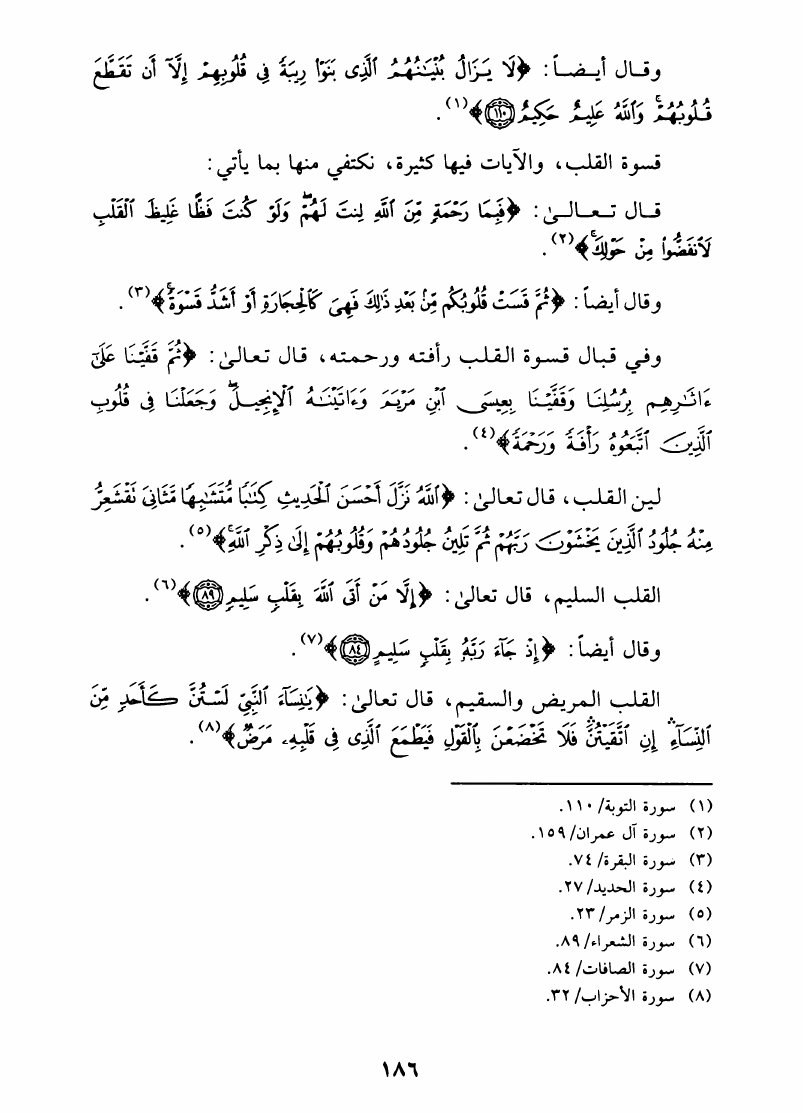 وقال أيضاً: ﴿لَا يَزَالُ بُنْيَـٰنُهُمُ ٱلَّذِى بَنَوْا۟ رِيبَةً فِى قُلُوبِهِمْ إِلَّآ أَن تَقَطَّعَ
قُلُوبُهُمْ ۗ وَٱللَّهُ عَلِيمٌ حَكِيمٌ ١١٠﴾(١).
قسوة القلب، والآيات فيها كثيرة، نكتفي منها بما يأتي:
قال تعالىٰ: ﴿فَبِمَا رَحْمَةٍ مِّنَ ٱللَّهِ لِنتَ لَهُمْ ۖ وَلَوْ كُنتَ فَظًّا غَلِيظَ ٱلْقَلْبِ
لَٱنفَضُّوا۟ مِنْ حَوْلِكَ ۖ﴾(٢).
وقال أيضاً: ﴿ثُمَّ قَسَتْ قُلُوبُكُم مِّنۢ بَعْدِ ذَٰلِكَ فَهِىَ كَٱلْحِجَارَةِ أَوْ أَشَدُّ قَسْوَةً ۚ﴾(٣).
وفي قبال قسوة القلب رأفته ورحمته، قال تعالىٰ: ﴿ثُمَّ قَفَّيْنَا عَلَىٰٓ
ءَاثَـٰرِهِم بِرُسُلِنَا وَقَفَّيْنَا بِعِيسَى ٱبْنِ مَرْيَمَ وَءَاتَيْنَـٰهُ ٱلْإِنجِيلَ ۖ وَجَعَلْنَا فِى قُلُوبِ
ٱلَّذِينَ ٱتَّبَعُوهُ رَأْفَةً وَرَحْمَةً﴾(٤).
لين القلب، قال تعالىٰ: ﴿ٱللَّهُ نَزَّلَ أَحْسَنَ ٱلْحَدِيثِ كِتَـٰبًا مُّتَشَـٰبِهًا مَّثَانِىَ تَقْشَعِرُّ
مِنْهُ جُلُودُ ٱلَّذِينَ يَخْشَوْنَ رَبَّهُمْ ثُمَّ تَلِينُ جُلُودُهُمْ وَقُلُوبُهُمْ إِلَىٰ ذِكْرِ ٱللَّهِ ۚ﴾(٥).
القلب السليم، قال تعالىٰ: ﴿إِلَّا مَنْ أَتَى ٱللَّهَ بِقَلْبٍ سَلِيمٍ ٨٩﴾(٦).
وقال أيضاً: ﴿إِذْ جَآءَ رَبَّهُۥ بِقَلْبٍ سَلِيمٍ ٨٤﴾(٧).
القلب المريض والسقيم، قال تعالىٰ: ﴿يَـٰنِسَآءَ ٱلنَّبِىِّ لَسْتُنَّ كَأَحَدٍ مِّنَ
ٱلنِّسَآءِ ۚ إِنِ ٱتَّقَيْتُنَّ فَلَا تَخْضَعْنَ بِٱلْقَوْلِ فَيَطْمَعَ ٱلَّذِى فِى قَلْبِهِۦ مَرَضٌ﴾(٨).
(١) سورة التوبة/ ١١٠.
(٢) سورة آل عمران/ ١٥٩.
(٣) سورة البقرة/ ٧٤.
(٤) سورة الحديد/ ٢٧.
(٥) سورة الزمر/ ٢٣.
(٦) سورة الشعراء/ ٨٩.
(٧) سورة الصافات/ ٨٤.
(٨) سورة الأحزاب/ ٣٢.
١٨٦